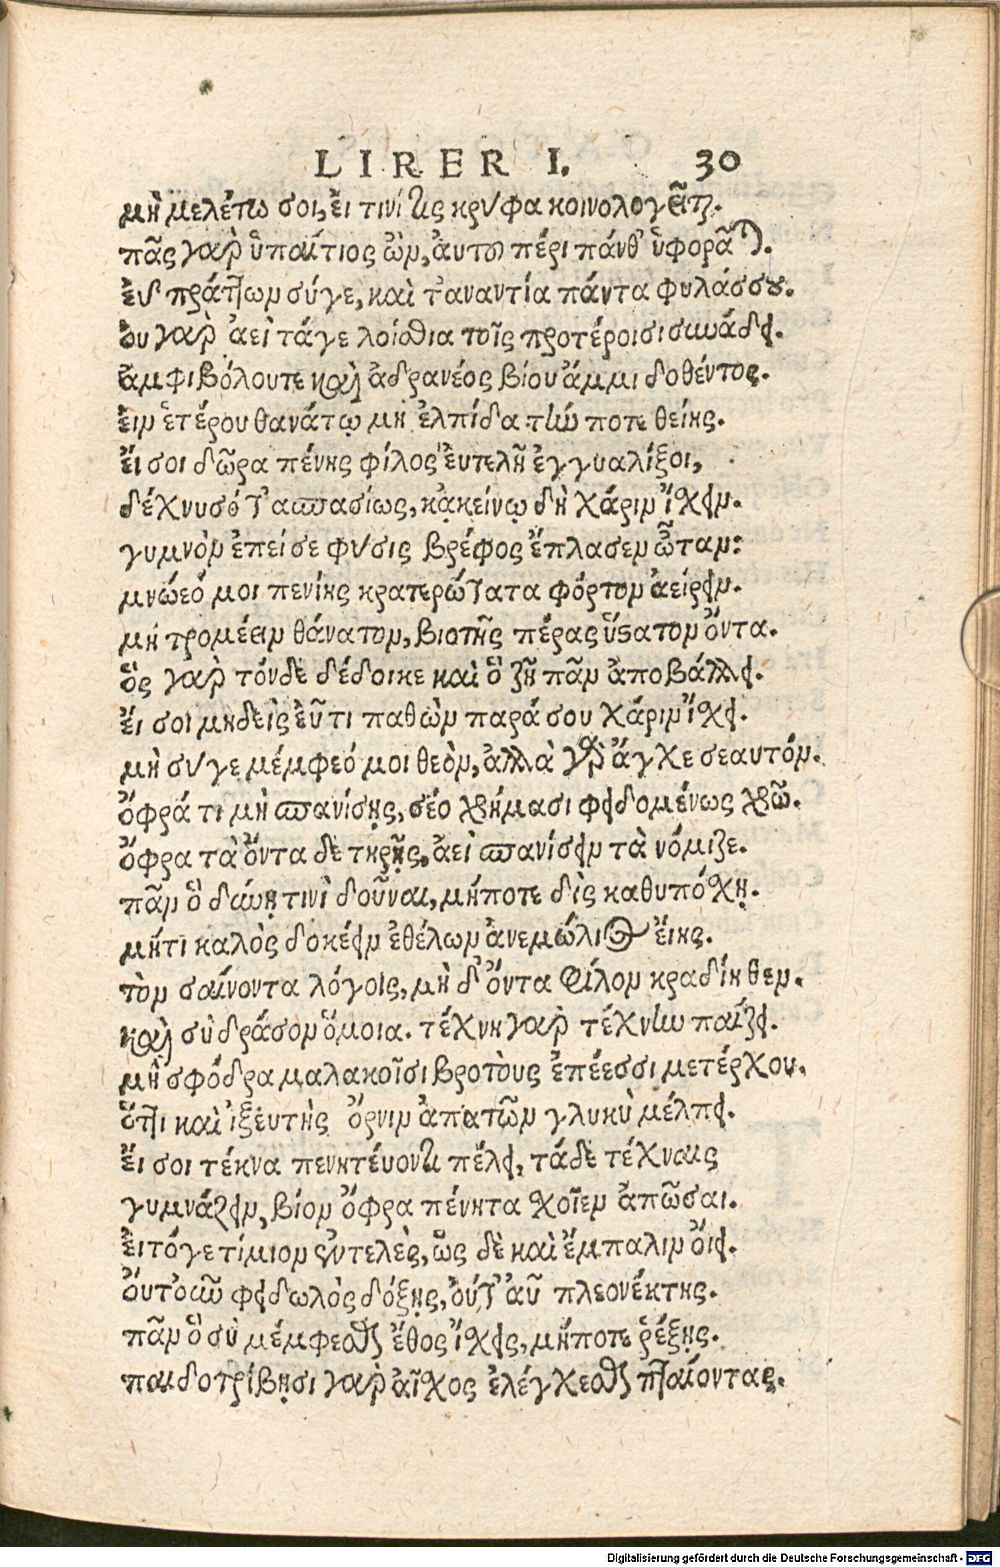 LIBER I. 30
μὴ μελέτω σοι, εἴ τινί τις κρύφα κοινολογεῖται.
πᾶς γὰρ ὑπαίτιος ὢν, ἀυτοῦ πέρι πάνθ' ὑφορᾶται.
εὖ πράττων σύγε, καὶ τ' αναντία πάντα φυλάσσου.
ὀυ γὰρ ἀεὶ τά γε λοίσθια τοῖς προτέροισι συνάδει.
ἀμφιβόλου τε καὶ ἀδρανέος βίου ἄμμι δοθέντος.
ἐιν ἑτέρου θανάτῳ μὴ ἐλπίδα τήν ποτε θείης.
ἔι σοι δῶρα πένης φίλος ἐυτελῆ ἐγγυαλίξοι,
δέχνυσό τ' ασπασίως, κᾀκείνῳ δὴ χάριν ἴχειν.
γυμνὸν ἐπεί σε φύσις βρέφος ἔπλασεν ὦταν:
μνώεό μοι πενίης κρατερώτατα φόρτον ἀείρειν.
μὴ τρομέειν θάνατον, βιοτῆς πέρας ὕστατον ὄντα.
ὃς γὰρ τόνδε δέδοικε καὶ ὃ ζῇ πᾶν ἀποβάλλει.
ἔι σοι μηδεὶς εὖ τι παθὼν παρά σου χάριν ἴχει.
μὴ σύγε μέμφεό μοι θεὸν, ἀλλὰ γὰρ ἄγχε σεαυτόν.
ὄφρά τι μὴ σπανίσῃς, σέο χρήμασι φειδομένως χρῶ.
ὄφρα τὰ ὄντα δὲ τηρῇς, ἀεὶ σπανίσειν τὰ νόμιζε.
πᾶν ὃ δώῃ τινὶ δοῦναι, μήποτε δὶς καθυπόχῃ.
μήτι καλὸς δοκέειν ἐθέλων ἀνεμώλιος ἔιης.
τὸν σαίνοντα λόγοις, μὴ δ' ὄντα φίλον κραδίηθεν.
καὶ σὺ δράσον ὅμοια. τέχνη γὰρ τέχνην παίζει.
μὴ σφόδρα μαλακοῖσι βροτοὺς ἐπέεσσι μετέρχου.
ὅττι καὶ ἰξευτὴς ὄρνιν ἀπατῶν γλυκὺ μέλπει.
ἔι σοι τέκνα πενητέυοντι πέλει, τάδε τέχναις
γυμνάζειν, βίον ὄφρα πένητα χοῖεν ἀπῶσαι.
ἐι τόγε τίμιον ἐυτελὲς, ὣς δὲ καὶ ἔμπαλιν ὄιει.
ὄυτ' οὖν φειδωλὸς δόξῃς, ὄυτ' αὖ πλεονέκτης.
πᾶν ὃ σὺ μέμφεσθαι ἔθος ἴχεις, μήποτε ῥέξῃς.
παιδοτρίβῃσι γὰρ αἶχος ἐλέγχεσθαι πταίοντας.
Digitalisierung gefördert durch die Deutsche Forschungsgemeinschaft - DFG